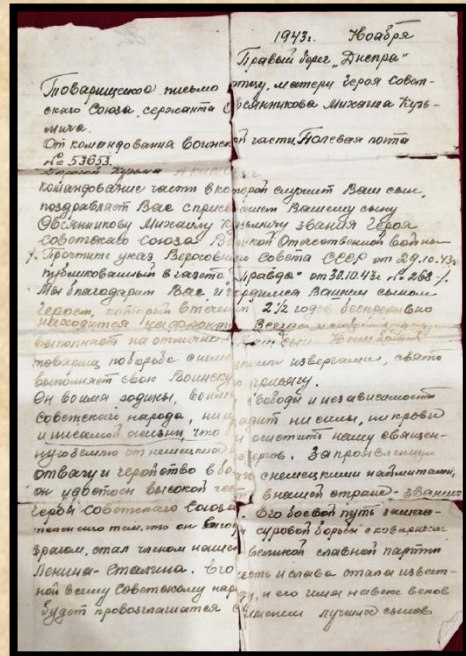 1943г. Ноября
Правый берег „Днепра"
Товарищеское письмо отцу, матери Героя Совет-
ского Союза, сержанта Овсянникова Михаила Кузь-
мича.
От командования воинской части Полевая почта
№ 53653.
Дорогой Кузьма
Командование части в которой служит Ваш сын,
поздравляет Вас с присвоением Вашему сыну
Овсянникову Михаилу Кузьмичу звания Героя
Советского Союза Великой Отечественной войны
/. Прочтите указ Верховного Совета СССР от 29.10.43г.
публикованный в газете „Правда" от 30.10.43г. № 268/.
Мы благодарим Вас и гордимся Вашим сыном
героем, который в течении 2½ годов беспрерывно
находится на фронте. Всегда
выполняет на отлично. Ваш сын
товарищ по борьбе с немецкими извергами, свято
выполняет свою Воинскую присягу.
Он во имя родины, во имя свободы и независимости
Советского народа, не щадит ни силы, ни крови
и ни самой жизни, что очистить нашу священ-
ную землю от немецких извергов. За проявленную
отвагу и геройство в боях с немецкими наймитами,
он удостоен высокой чести в нашей стране - звания
Героя Советского Союза. Его боевой путь
тем, что он в суровой борьбе с коварным
врагом, стал членом нашей великой славной партии
Ленина-Сталина. Его честь и слава стала извест-
ной всему Советскому народу, и его имя на веки веков
будет провозглашатся именем лучших сынов